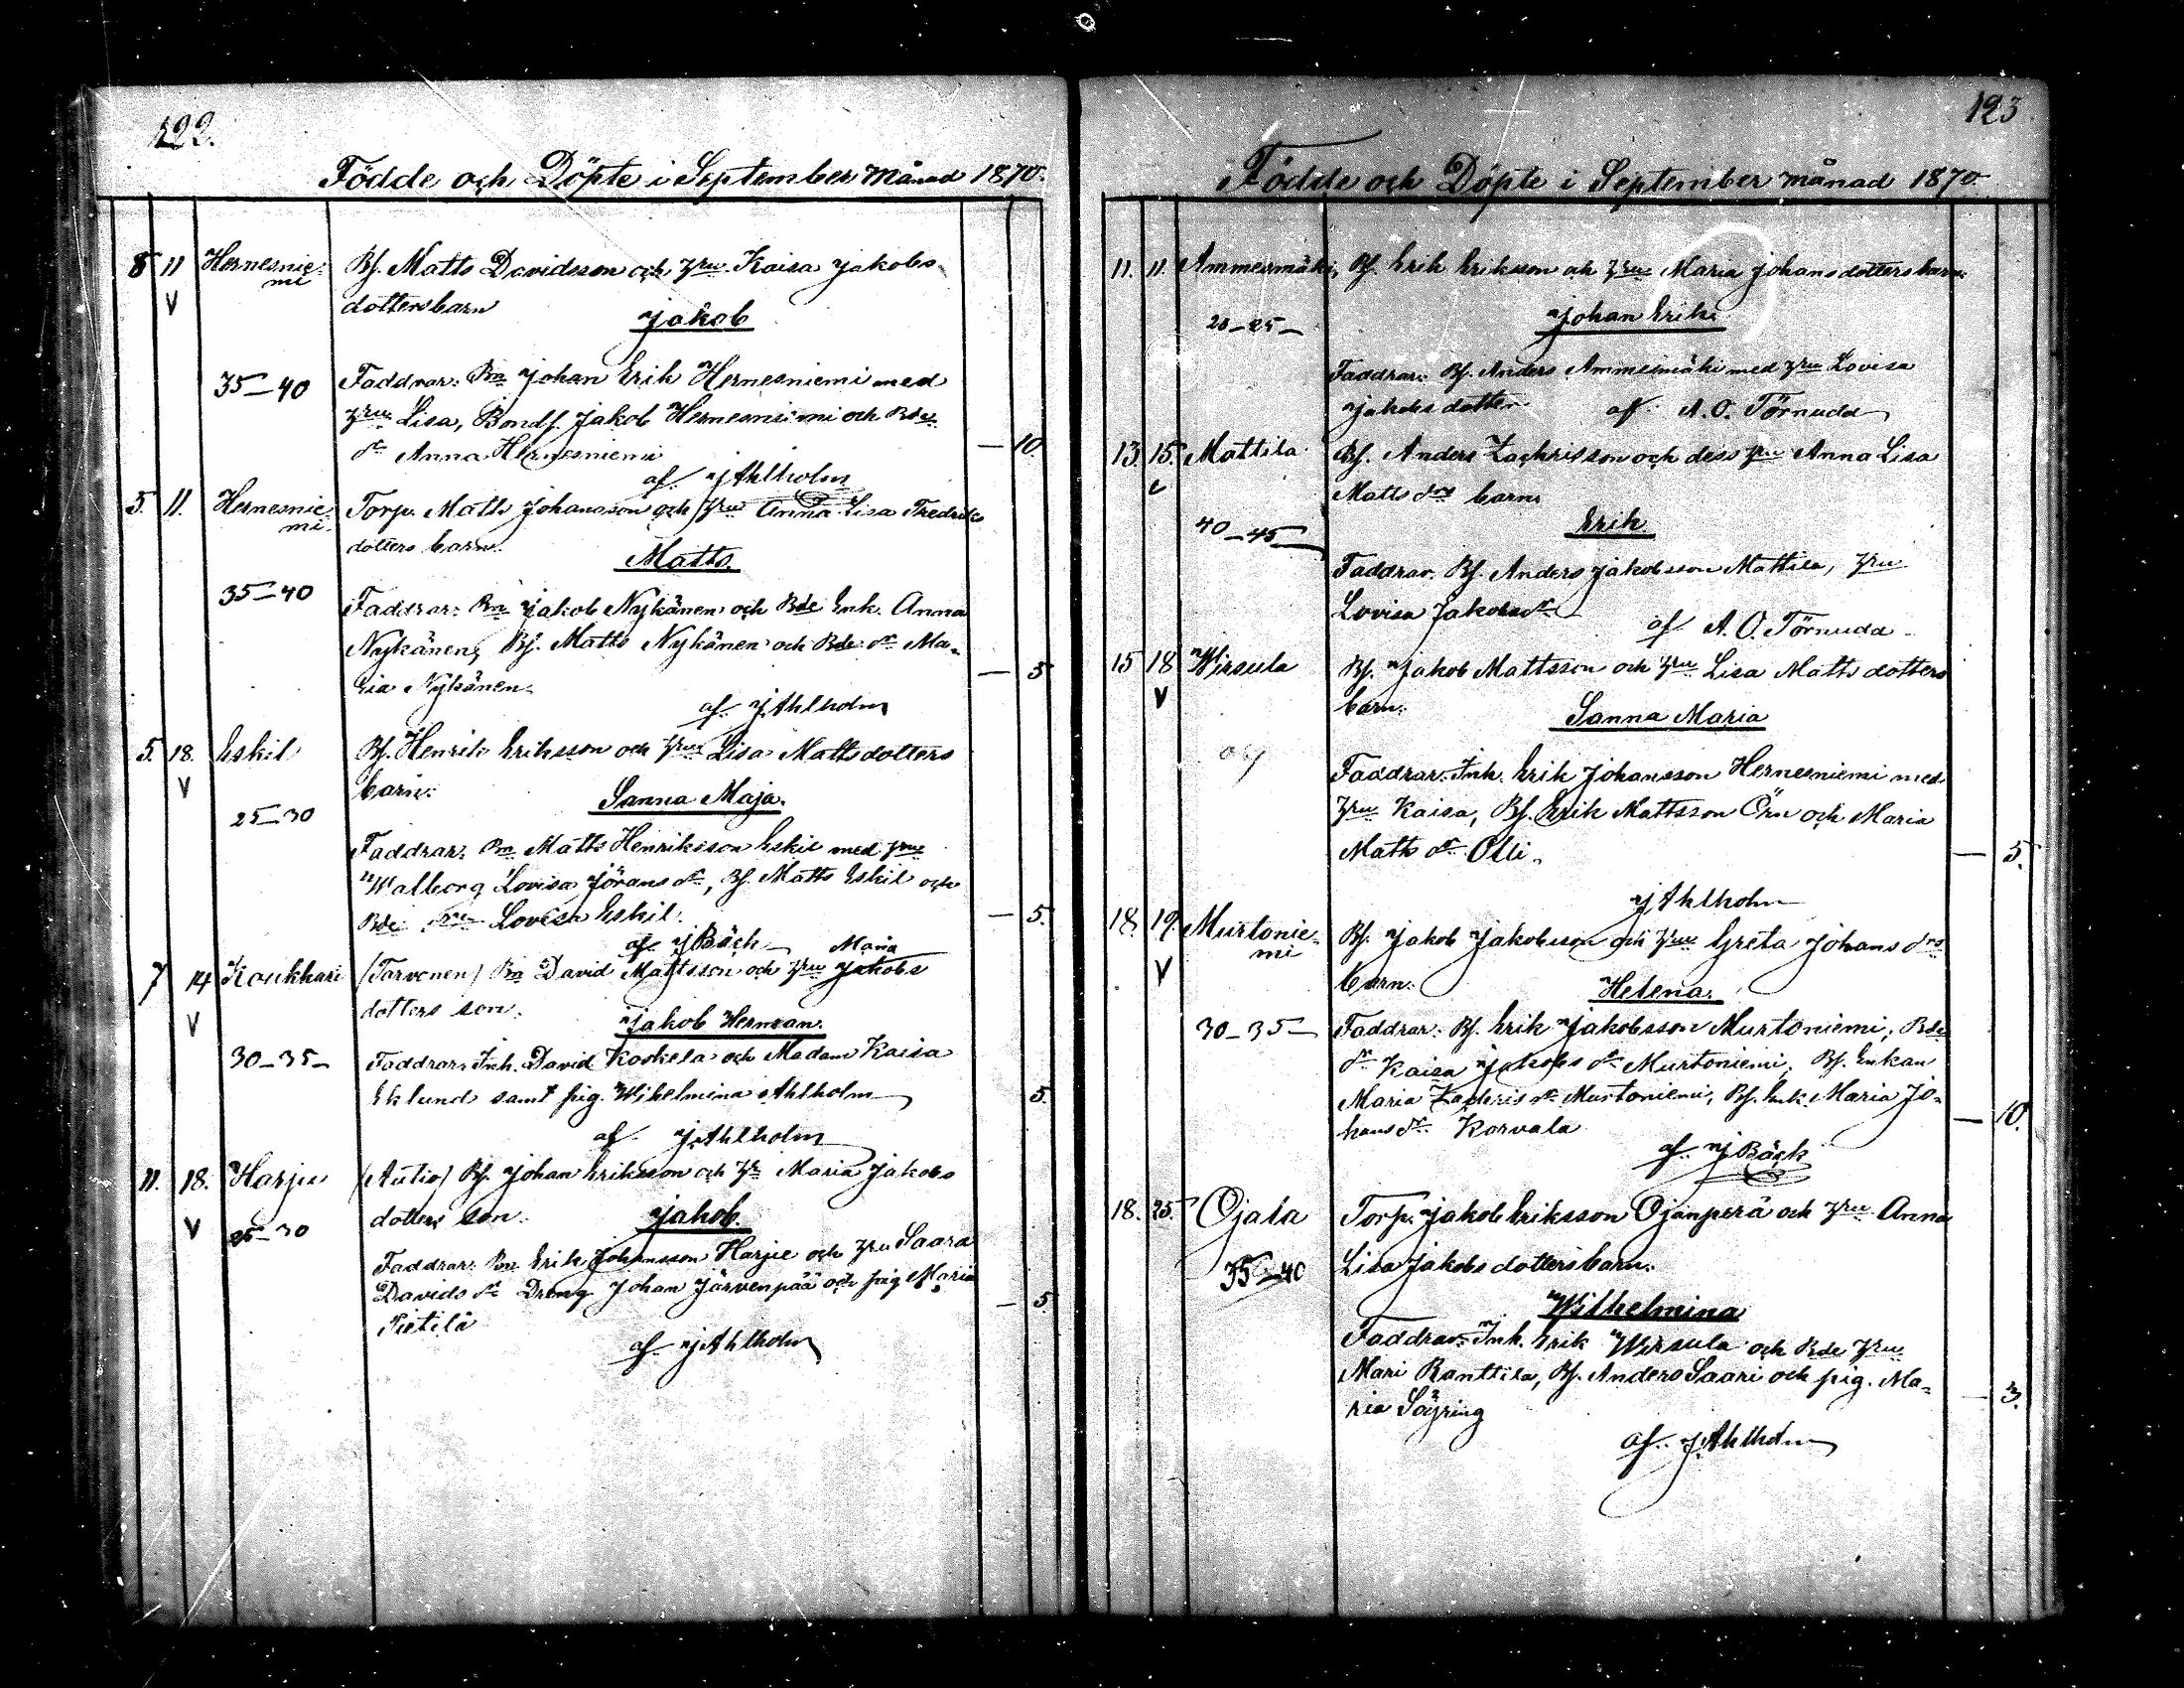 122.
Födde och Döpte i September månad 1870.
8 11 Hernesnie- Bs. Matts Davidsson och hru Kaisa Jakobs-
mi
V dotters barn
Jakob
35-40 Faddrar: Bn Johan Erik Hernesniemi med
hru Lisa, Bonds. Jakob Hernesniemi och Bde
dr Anna Hernesniemi — 10.
af J Ahlholm
5. 11. Hernesnie- Torp. Matts Johansson och hru Anna Lisa Fredriks
mi.
dotters barn.
Matts.
35-40 Faddrar: Bn Jakob Nykänen och Bde Enk. Anna
Nykänen, Bs. Matts Nykänen och Bde dr Ma-
ria Nykänen. — 5
af J Ahlholm
5. 18. Eskil Bs. Henrik Eriksson och hru Lisa Matts dotters
V barn:
Sanna Maja.
25-30
Faddrar: Bn Matts Henriksson Eskil med hru
Walborg Lovisa Jörans dr, Bs. Matts Eskil och
Bde hru Lovisa Eskil. — 5.
af J Bäck
Maria
7 14 Koukkari (Tarvonen) Bn David Mattsson och hru Jakobs
V dotters son.
Jakob Herman.
30-35- Faddrar: Inh. David Koskela och Madam Kaisa
Eklund samt pig. Wihelmina Ahlholm 5.
af J Ahlholm
11. 18. Harju (Autio) Bs. Johan Eriksson och hr Maria Jakobs
V dotters son.
Jakob.
25-30
Faddrar: Bn Erik Johansson Harju och hru Saara
Davids dr Dreng Johan Järvenpää och pig Maria
Pietilä — 5
af J Ahlholm
123
Födde och Döpte i September månad 1870.
11. 11. Ammesmäki, Bs. Erik Eriksson och hru Maria Johans dotters barn.
20-25- Johan Erik.
Faddrar: Bs. Anders Ammesmäki med hru Lovisa
Jakobs dotter af A. O. Törnudd
13. 15. Mattila Bs. Anders Zachrisson och dess hru Anna Lisa
V Matts drs barn
40-45 Erik.
Faddrar. Bs. Anders Jakobsson Mattila, hru
Lovisa Jakobs dr
af A. O. Törnudd
15 18 Wirsula Bs. Jakob Mattsson och hru Lisa Matts dotters
V barn:
Sanna Maria
Faddrar: Inh. Erik Johansson Hernesniemi med
hru Kaisa, Bs. Erik Mattsson Örn och Maria
Matts dr Olli. — 5.
J Ahlholm
18. 19. Murtonie- Bs. Jakob Jakobsson och hru Greta Johans drs
mi
V barn.
Helena.
30-35- Faddrar: Bs. Erik Jakobsson Murtoniemi, Bde
dr Kaisa Jakobs dr Murtoniemi, Bs. Enkan
Maria Zachris dr Murtoniemi, Bs. Enk. Maria Jo-
hans dr Korvala — 10.
af J Bäck
18. 25. Ojala Torp. Jakob Eriksson Ojanperä och hru Anna
35-40 Lisa Jakobs dotters barn.
Wilhelmina
Faddrar: Inh. Erik Wirsula och Bde hru
Mari Ranttila, Bs. Anders Saari och pig. Ma-
ria Söyring — 3.
af J Ahlholm